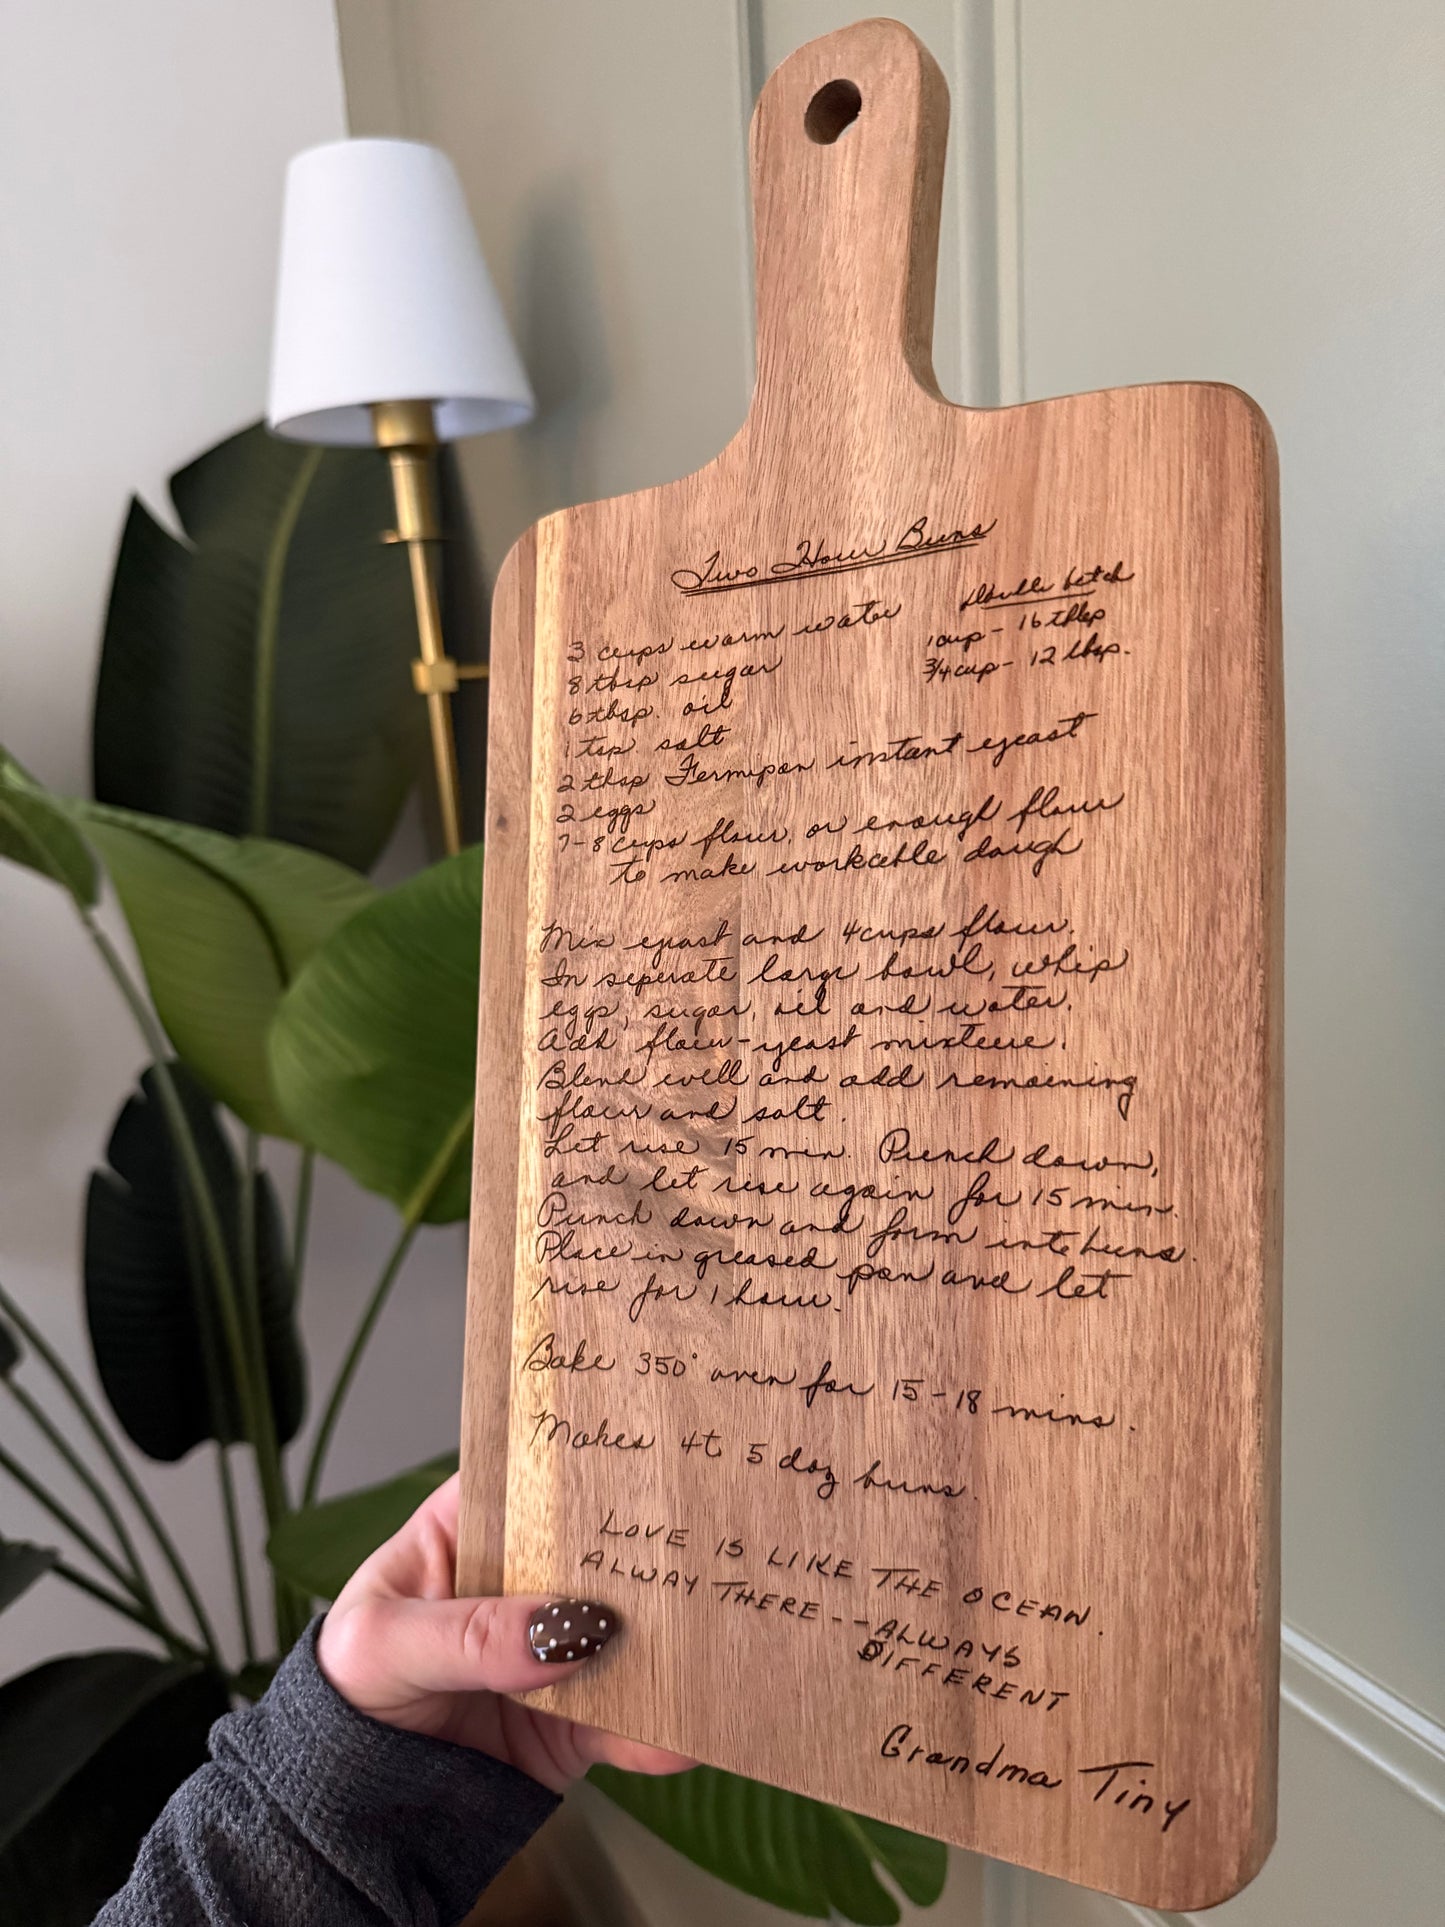 Two Hour Buns
Double batch
1 cup - 16 tbsp
3/4 cup - 12 tbsp.
3 cups warm water
8 tbsp sugar
6 tbsp. oil
1 tsp salt
2 tbsp Fermipan instant yeast
2 eggs
7-8 cups flour, or enough flour
to make workable dough
Mix yeast and 4 cups flour.
In seperate large bowl, whip
eggs, sugar, oil and water.
Add flour-yeast mixture.
Blend well and add remaining
flour and salt.
Let rise 15 min. Punch down,
and let rise again for 15 min.
Punch down and form into buns.
Place in greased pan and let
rise for 1 hour.
Bake 350° oven for 15-18 mins.
Makes 4 to 5 doz buns.
LOVE IS LIKE THE OCEAN.
ALWAY THERE--ALWAYS
DIFFERENT
Grandma Tiny